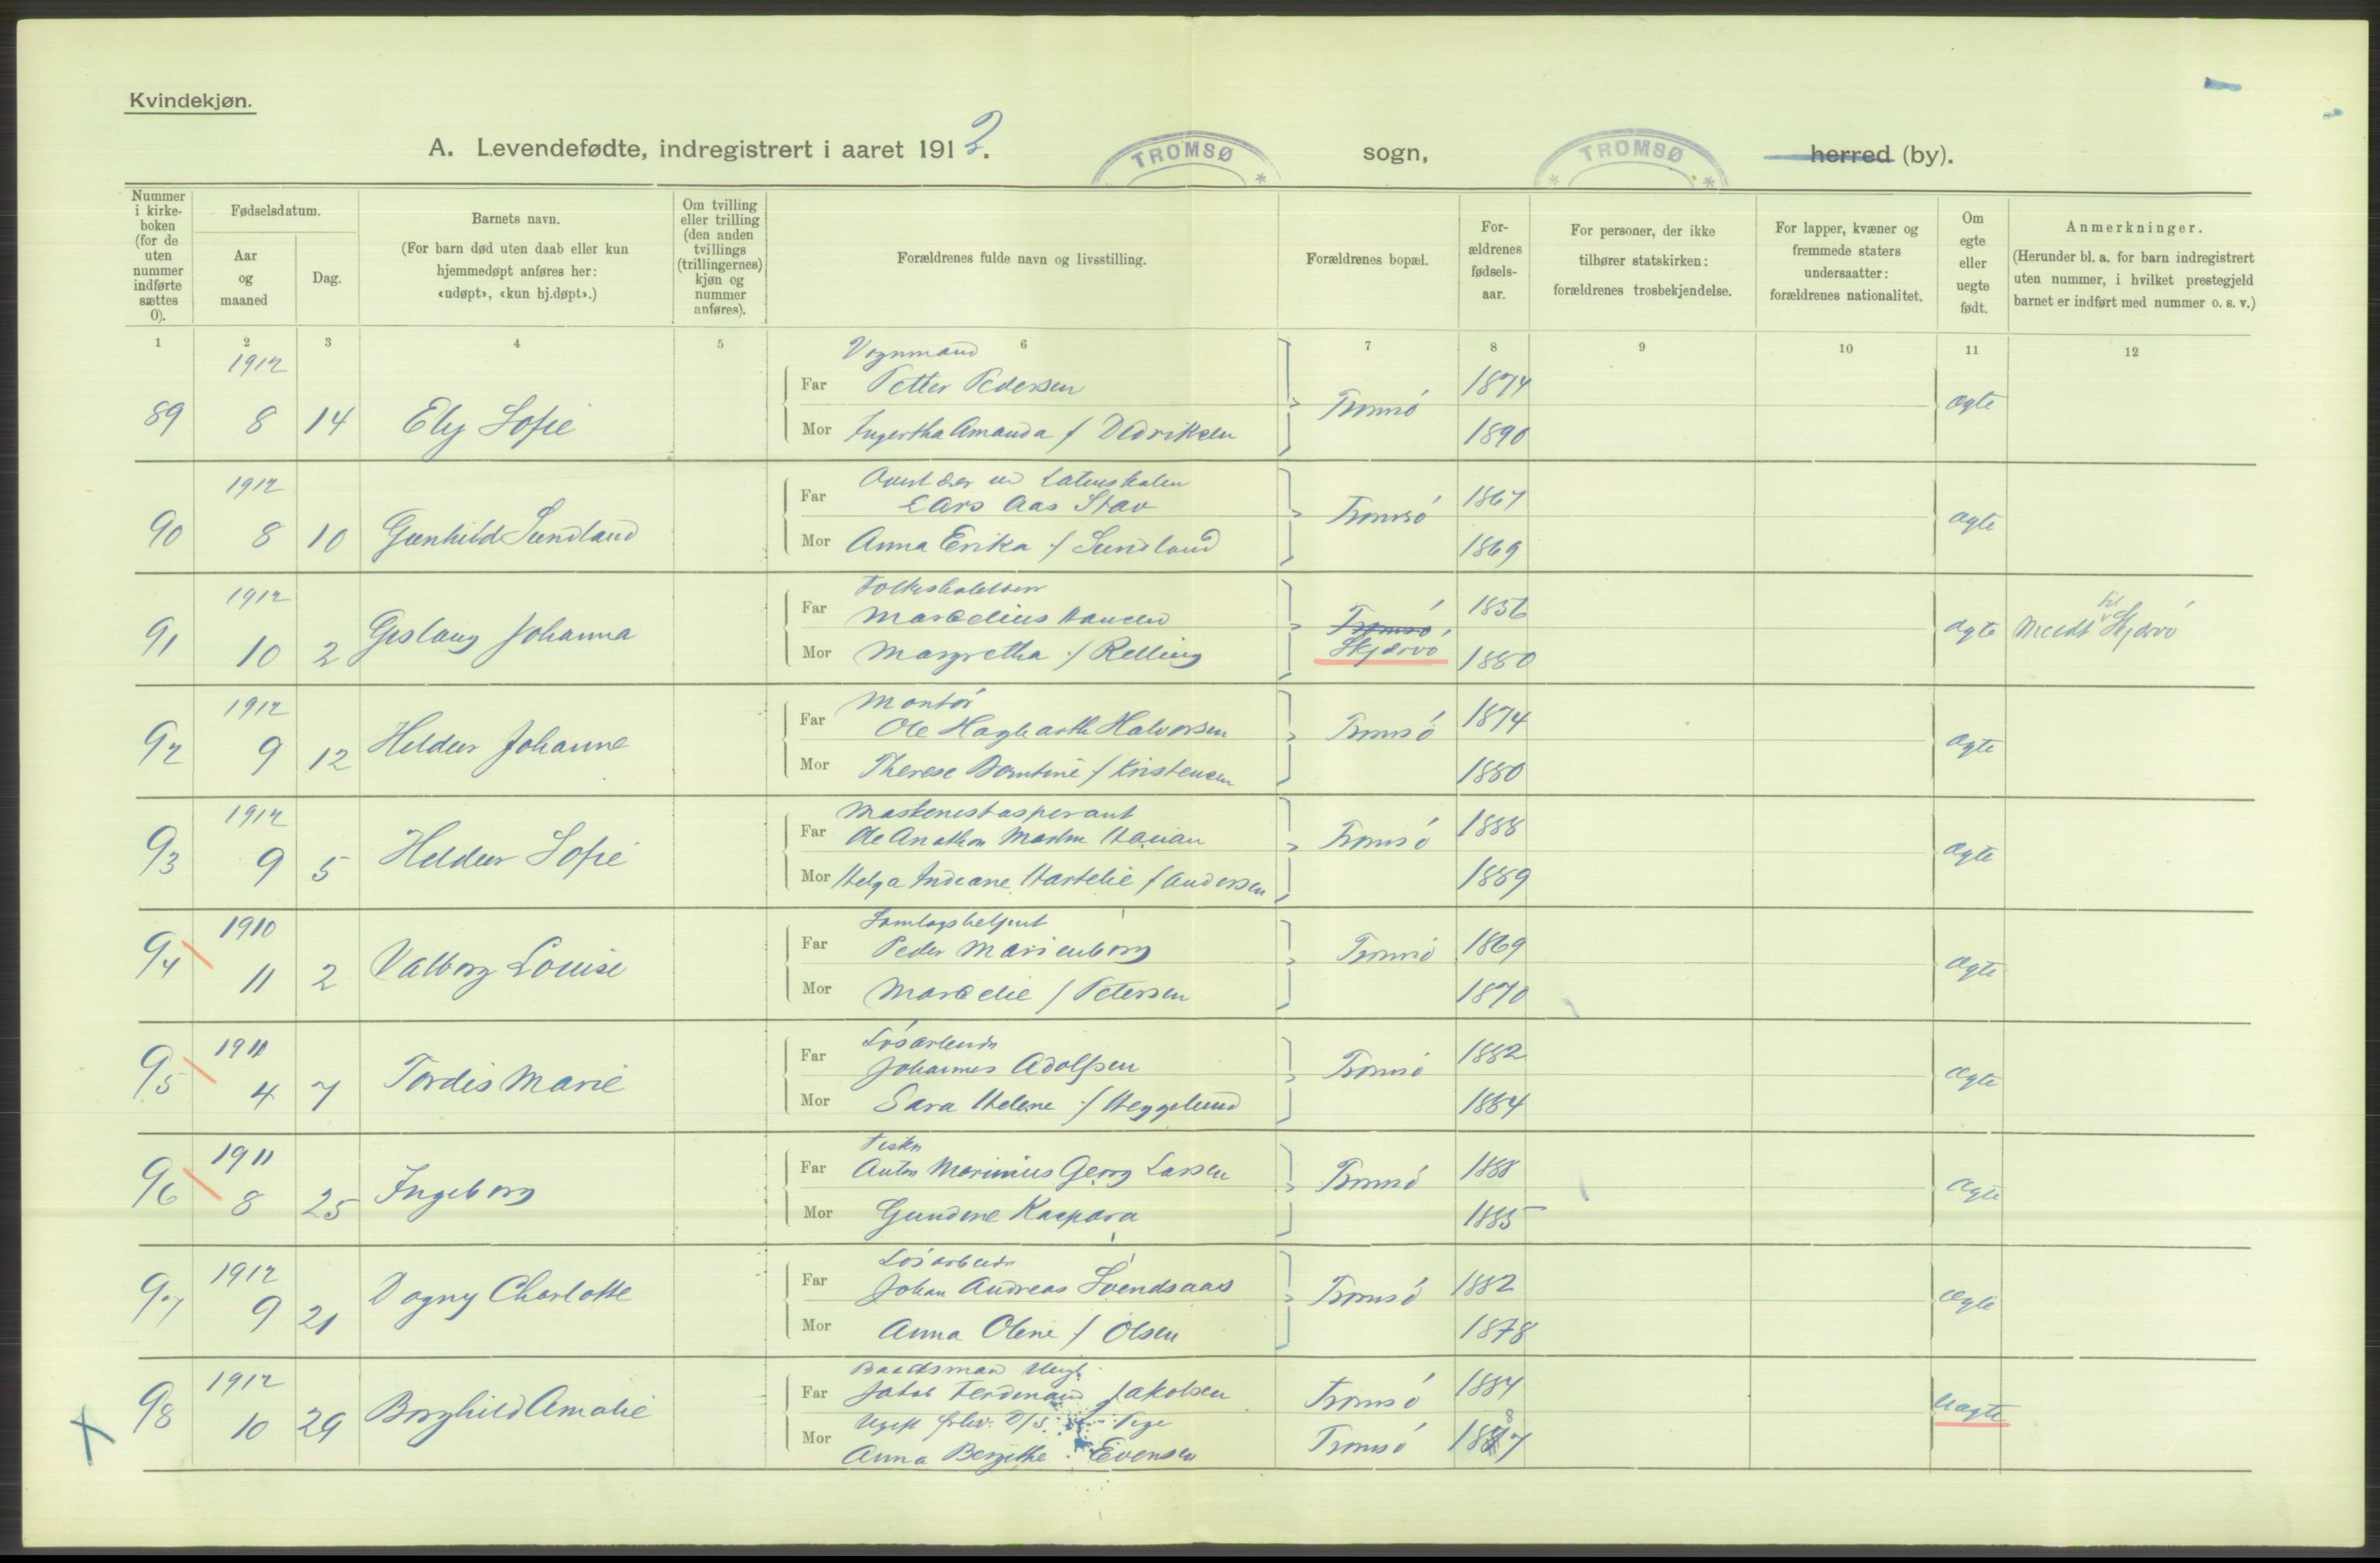 Kvindekjøn.
A. Levendefødte, indregistrert i aaret 1912. TROMSØ sogn, TROMSØ herred (by).
Nummer i kirke-boken (for de uten nummer indførte sættes 0).
Fødselsdatum.
Aar og maaned
Dag.
Barnets navn.
(For barn død uten daab eller kun hjemmedøpt anføres her: «udøpt», «kun hj.døpt».)
Om tvilling eller trilling (den anden tvillings (trillingernes) kjøn og nummer anføres).
Forældrenes fulde navn og livsstilling.
Forældrenes bopæl.
For-ældrenes fødsels-aar.
For personer, der ikke tilhører statskirken: forældrenes trosbekjendelse.
For lapper, kvæner og fremmede staters undersaatter: forældrenes nationalitet.
Om egte eller uegte født.
Anmerkninger.
(Herunder bl. a. for barn indregistrert uten nummer, i hvilket prestegjeld barnet er indført med nummer o. s. v.)
1 2 3 4 5 6 7 8 9 10 11 12
1912 Vognmand
Far Petter Pedersen 1874
89 8 14 Ely Sofie Tromsö ægte
Mor Ingertha Amanda f Dedriksen 1890
1912
Far Lars Aas Stav 1867
90 8 10 Gunhild Sundland Tromsö ægte
Mor Anna Erika f Sundland 1869
1912
Far Marselius Hansen 1856
91 10 2 Gislaug Johanna Tromsö Skjervö ægte Meldt til Skjervö
Mor Margretha f Relling 1880
1912 Montör
Far Ole Hagbarth Halvorsen 1874
92 9 12 Heldur Johanne Tromsö ægte
Mor Therese Berntine f Kristensen 1880
1912 Maskinistaspirant
Far Ole Anathon Martin 1888
93 9 5 Heldur Sofie Tromsö ægte
Mor Helga Indiane f Andersen 1889
1910 Samlagsbetjent
Far Peder Marienborg 1869
94 11 2 Valborg Louise Tromsö ægte
Mor Marselie f Petersen 1870
1911 Lösarbeider
Far Johannes Adolfsen 1882
95 4 7 Tordis Marie Tromsö ægte
Mor Sara Helene f Heggelund 1884
1911 Fisker
Far Anton Marinius Georg Larsen 1888
96 8 25 Ingeborg Tromsö ægte
Mor Gundine Kaspara 1885
1912 Lösarbeider
Far Johan Andreas Svendsaas 1882
97 9 21 Dagny Charlotte Tromsö ægte
Mor Anna Oline f Olsen 1878
1912 Baadsmand Ungk.
Far Jakob Ferdinand Jakobsen Tromsö 1884
98 10 29 Borghild Amalie uægte
Ugift Pige
Mor Anna Bergithe Evensen Tromsö 1887